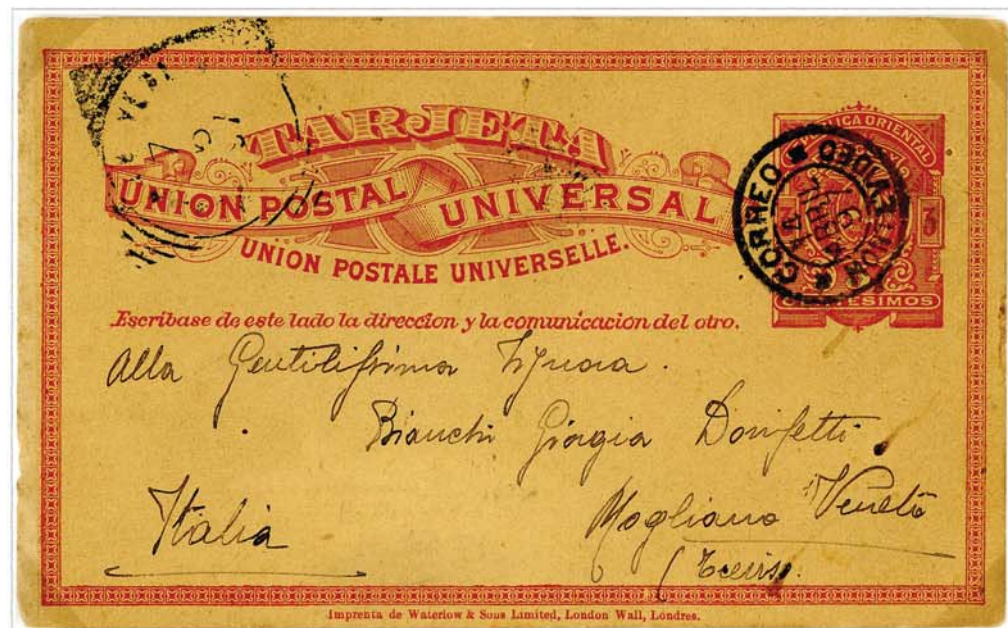 TARJETA
UNION POSTAL UNIVERSAL
UNION POSTALE UNIVERSELLE.
ORIENTAL
3
CENTESIMOS
CORREO
MONTEVIDEO
ABRIL
Escribase de este lado la direccion y la comunicacion del otro.
Alla Gentilissima Signora.
Bianchi Giorgia Donizetti
Italia
Mogliano Veneto
(Treviso
Imprenta de Waterlow & Sons Limited, London Wall, Londres.